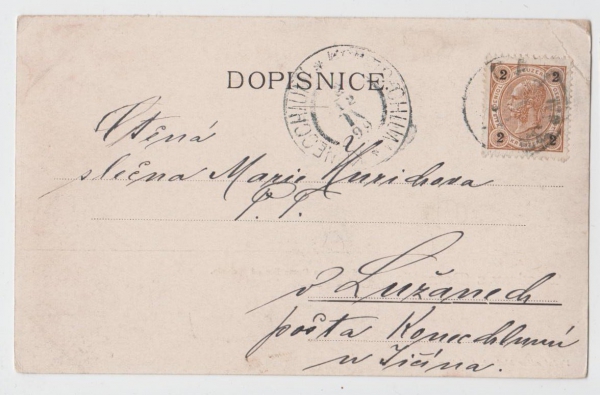 DOPISNICE
2 2
2 2
Ctěná
slečna Marie
P. T.
v Lužanech
pošta Konecchlumí
u Jičína.